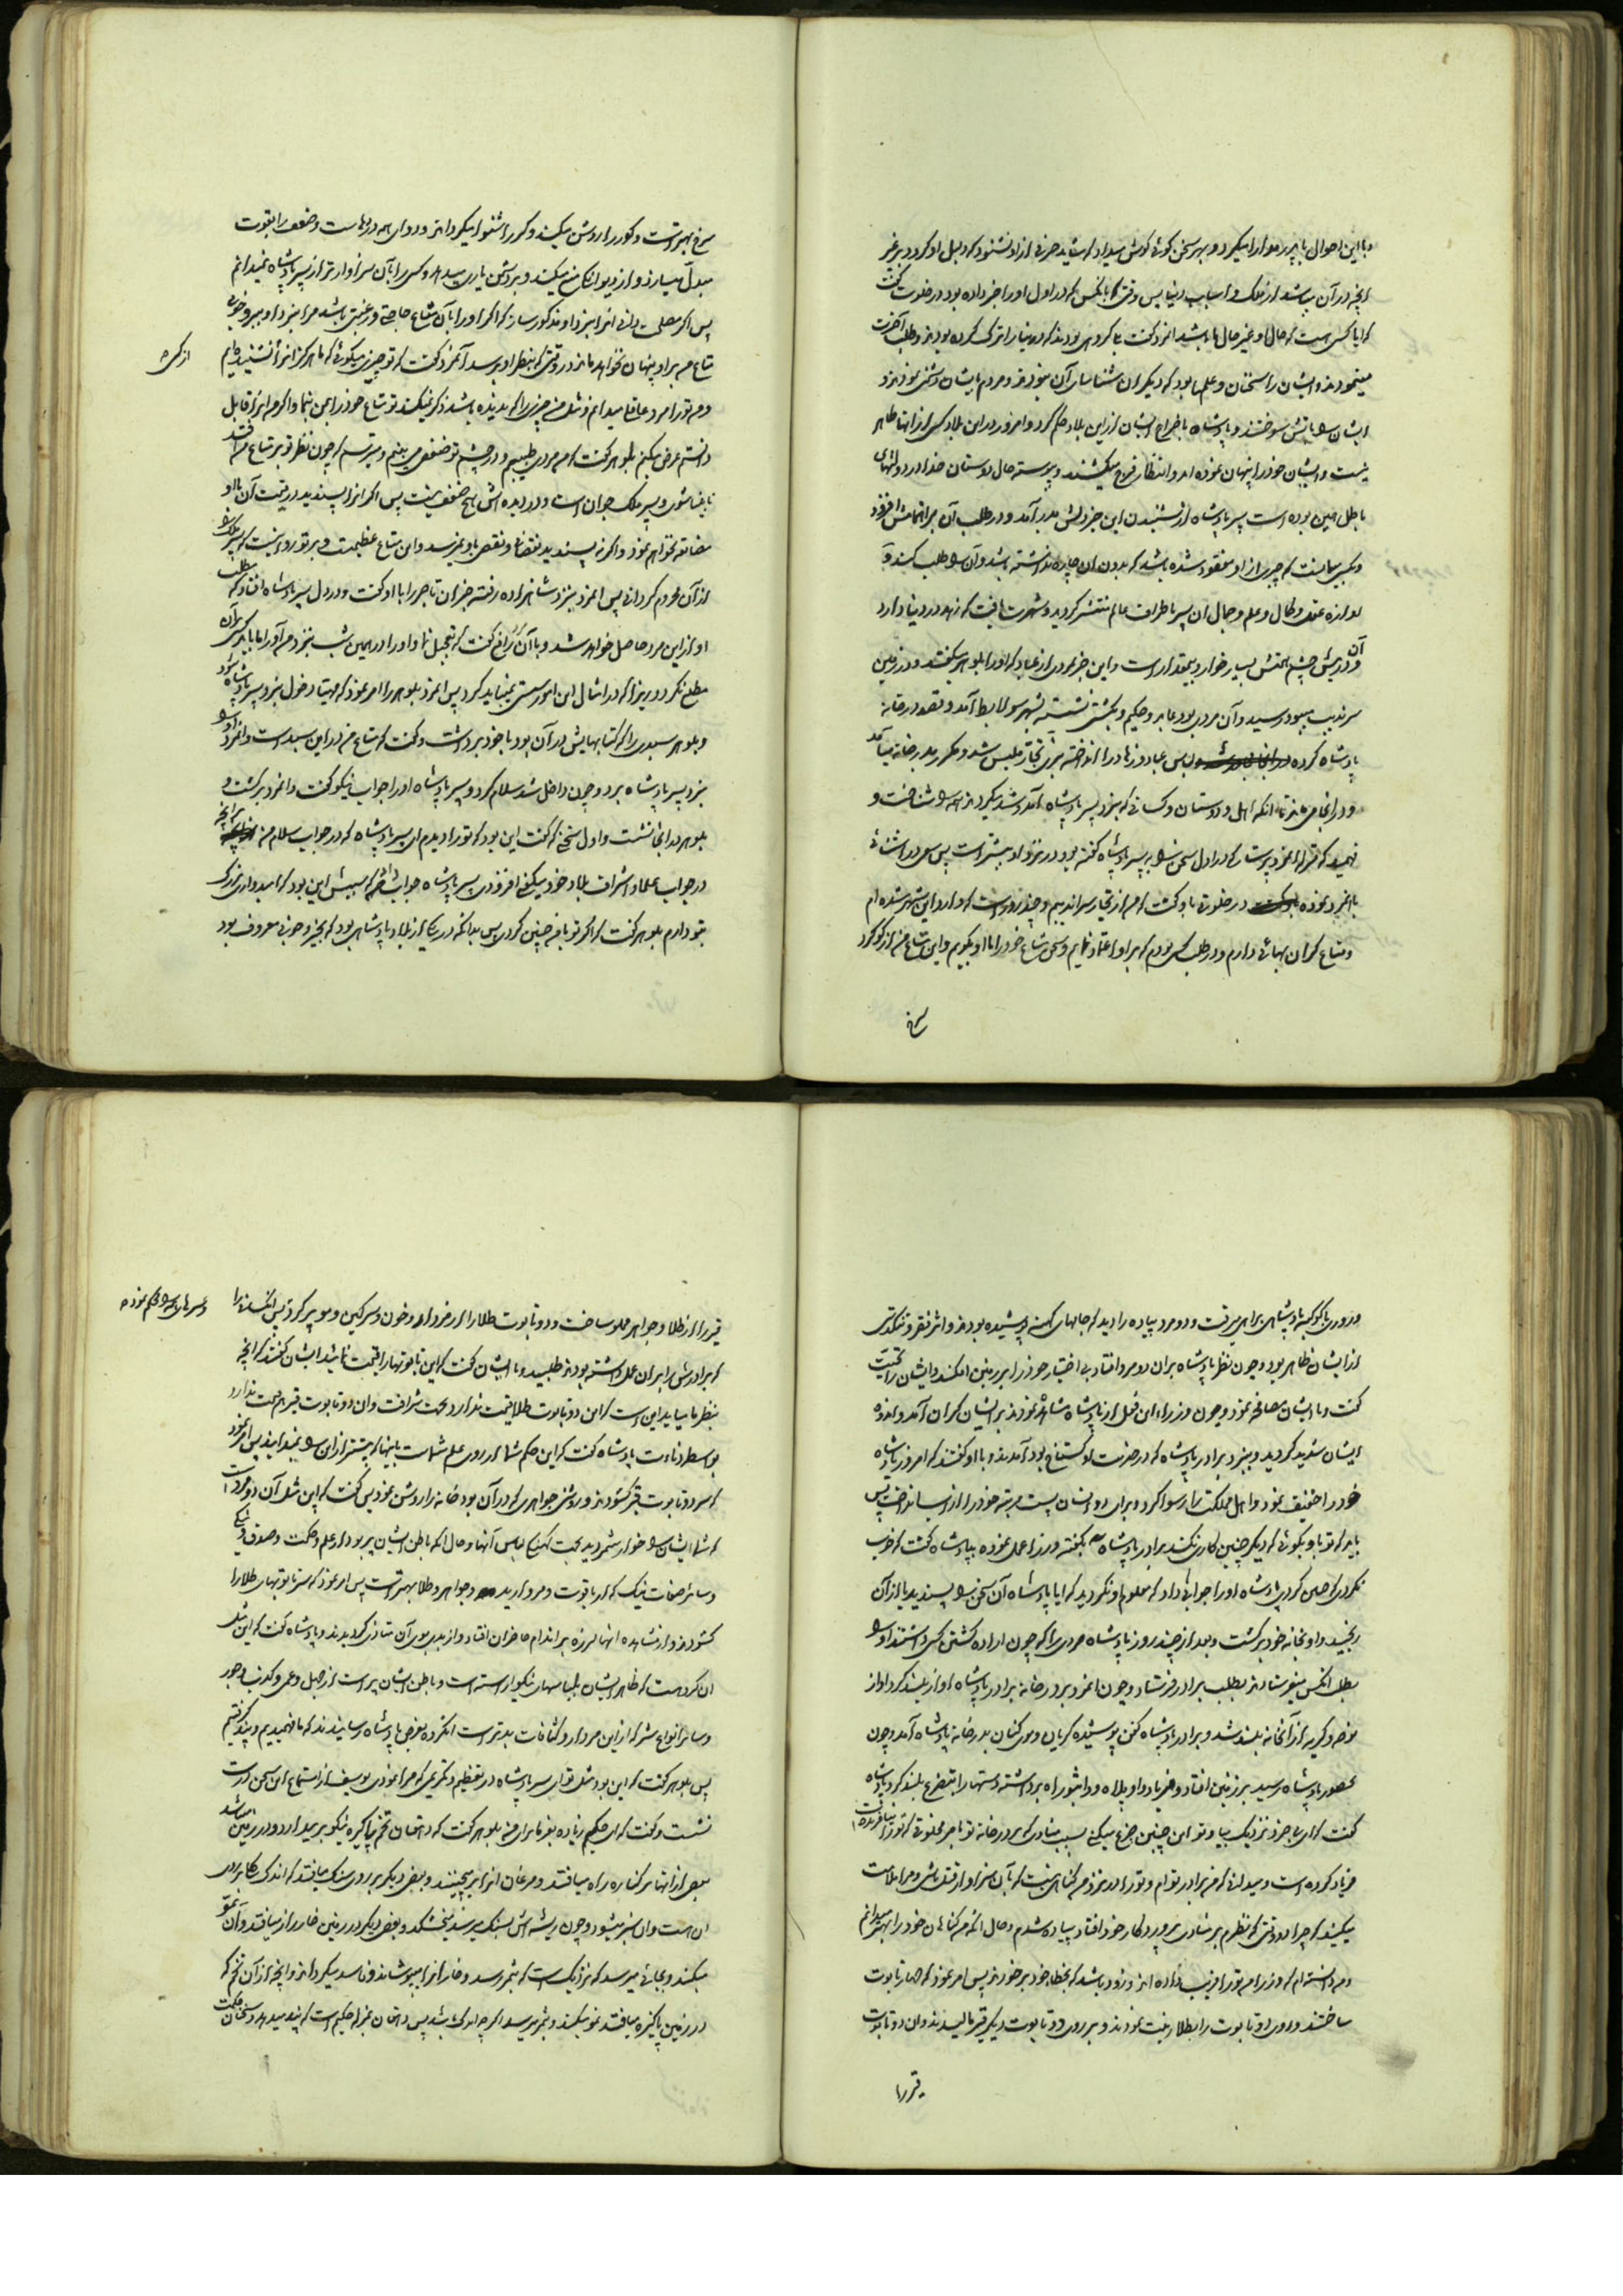 و با این احوال با پدر مدارا میکرد و بهر سخن گوئی گوش میداد که شاید حرفی از او بشنود که دلیل او گردد بر غیر
آنچه در آن میباشد از ملک و اسباب دنیا پس وقتی با آنکس که در اول او را خبر داده بود در خلوت گفت
که ایا کسی هست که حال او غیر حال ما باشد انمرد گفت که گروهی بودند که دنیا را ترک کرده بودند و طلب آخرت
مینمودند و ایشان را سخنان و علمها بود که دیگران شناسای آن نبودند و مردم با ایشان دشمنی نمودند و
ایشان را باتش سوختند و پادشاه باخراج ایشان ازین بلاد حکم کرد و امروز در این بلاد کسی از انها ظاهر
نیست و ایشان خود را پنهان نموده اند و انتظار فرج میکشند و پیوسته حال دوستان خدا در دولتهای
باطل همین بوده است پسر پادشاه از شنیدن این خبر دلش بدرد آمد و در طلب آن بر اهتمامش افزود
و کسی بمانست که چیزی از او مفقود شده باشد که بدون آن چاره نداشته باشد و آن را طلب کند و
اوازه عقل و کمال و علم و جمال ان پسر باطراف عالم منتشر گردید و شهرت یافت که زهد در دنیا دارد
و آن در پیش چشم همتش بسیار خوار و بیمقدار است و این خبر بمردی از عباد که او را بلوهر میگفتند و در زمین
سرندیب میبود رسید و آن مردی بود عابد و حکیم و بکشتی نشسته بشهر سولابط آمد و قصد در خانه
پادشاه کرده و لباس عباد و زهاد را انداخته بزی تجار ملبس شد و مکرر بدر خانه میآمد
و در انجا می بود تا انکه اهل و دوستان و کسانی که بنزد پسر پادشاه آمد و شد میکردند همه را شناخت و
فهمید که قرب انمرد پرستار که در اول سخن را به پسر پادشاه گفته بود در نزد او بیشتر است پس بلوهر آشنائی
باانمرد نموده در خلوتی باو گفت که من از تجار سراندیبم و چند روز است که وارد این شهر شده ام
و متاع گران بهائی دارم و در طلب کسی بودم که بر او اعتماد نمایم و سخن متاع خود را باو بگویم و این متاع من از گوگرد
سرخ
سرخ بهتر است و کور را روشن میکند و کر را شنوا میگرداند و دوای همه دردهاست و ضعف را بقوت
مبدل میسازد و از دیوانگی منع میکند و بر دشمن یاری میدهد و کسی را بآن سزاوارتر از پسر پادشاه نمیدانم
پس اگر مصلحت دانی انرا بنزد او مذکور ساز که اگر او را بآن متاع حاجتی و رغبتی باشد مرا بنزد او ببر و خوبی
متاع من بر او پنهان نخواهد ماند در وقتی که بنظر او برسد آنمرد گفت که تو چیزی میگوئی که ما هرگز انرا نشنیده ایم
از کسی
و من تو را مرد عاقلی میدانم و مثل من چیزی را که ندیده باشد ذکر نمیکند تو متاع خود را بمن بنما و اگر من انرا قابل
دانستم عرض میکنم بلوهر گفت که من مردی طبیبم و در چشم تو ضعفی می بینم و میترسم که چون نظر تو بر متاع من افتد
نابینا شوی و پسر ملک جوان است و در دیده اش هیچ ضعفی نیست پس اگر انرا بپسندد در قیمت آن با او
مضایقه نخواهم نمود و اگر نه پسندید نقصانی و نقصی باو نمیرسد و این متاع عظیمست و بر تو روا نیست که پسر ملک را
از آن محروم گردانی پس انمرد بنزد شاهزاده رفته خبر ان تاجر را با او گفت و در دل پسر پادشاه افتاد که مطلب
او از این مرد حاصل خواهد شد و با آن پرستار گفت که تعجیل نما و او را در همین شب بنزد من آور اما باید کسی بر آن
مطلع نگردد زیرا که در امثال این امور سستی نمیباید کرد پس انمرد بلوهر را امر نمود که مهیای دخول بنزد پسر پادشاه شود
و بلوهر سبدی را که کتابهایش در آن بود با خود برداشت و گفت که متاع من در این سبد است و انمرد او را
بنزد پسر پادشاه برد و چون داخل شد سلام کرد و پسر پادشاه او را جواب نیکو گفت و انمرد برگشت و
بلوهر در انجا نشست و اول سخنی که گفت این بود که تو را دیدم ای پسر پادشاه که در جواب سلام من بر انچه
در جواب علما و اشراف بلاد خود میکنی افزودی پسر پادشاه جواب داد که سببش این بود که امید واری بزرگ
بتو دارم بلوهر گفت که اگر تو با من چنین کردی پس بدانکه در یکی از بلاد پادشاهی بود که بخیر و خوبی معروف بود
و روزی با کوکبه پادشاهی براهی میرفت و دو مرد پیاده را دید که جامهای کهنه پوشیده بودند و اثر فقر و تنگدستی
از ایشان ظاهر بود و چون نظر پادشاه بران دو مرد افتاد بی اختیار خود را بر زمین افکند و ایشان را تحیت
گفت و با ایشان مصافحه نمود و چون وزراء این فعل از پادشاه مشاهده نمودند بر ایشان گران آمد و اندوه
ایشان شدید گردید و بنزد برادر پادشاه که در خدمت او گستاخ بود آمدند و با او گفتند که امروز پادشاه
خود را خفیف نمود و اهل مملکت را رسوا کرد و برای دو انسان پست مرتبه خود را از اسب انداخت پس
باید که تو باو بگوئی که دیگر چنین کاری نکند برادر پادشاه بگفته وزرا عمل نموده بپادشاه گفت که خوب
نکردی که چنین کردی پادشاه او را جوابی داد که معلوم او نگردید که ایا پادشاه آن سخن را پسندید یا از آن
رنجید و او بخانه خود برگشت و بعد از چند روز پادشاه مردی را که چون اراده کشتن کسی داشتند او را
بطلب انکس میفرستادند بطلب برادر فرستاد و چون انمرد بر در خانه برادر پادشاه اواز بلند کرد اواز
نوحه و گریه از آنخانه بلند شد و برادر پادشاه کفن پوشیده گریان و موی کنان بدر خانه پادشاه آمد و چون
بحضور پادشاه رسید بر زمین افتاد و فریاد واویلاه و واثبوراه برداشته دستها را بتضرع بلند کرد پادشاه
گفت که ای بیخرد نزدیک بیا و تو این چنین جزع میکنی بسبب منادی که بر در خانه تو بامر مخلوقی که تو را نیافریده است
فریاد کرده است و میدانی که من برادر توام و تو را در نزد من گناهی نیست که بآن سزاوار قتل باشی و مرا ملامت
میکنید که چرا در وقتی که نظرم بر منادی پروردگار خود افتاد پیاده شدم و حال انکه من گناهان خود را بهتر میدانم
و من دانسته ام که وزرا من تو را فریب داده اند و زود باشد که بخطای خود برخورند پس امر نمود که چهار تابوت
ساختند و روی دو تابوت را بطلا زینت نمودند و بر روی دو تابوت دیگر قیر مالیدند و ان دو تابوت
قیر را
قیر را از طلا و جواهر مملو ساخت و دو تابوت طلا را از مردار و خون و سرگین و مو پر کرد پس انکسان را
و سرهای همه را محکم نموده
که برادرش را بر ان عمل داشته بودند طلبید و با ایشان گفت که این تابوتها را قیمت نمائید ایشان گفتند که انچه
بنظر ما میاید این است که این دو تابوت طلا قیمت ندارد بجهت شرافت و ان دو تابوت قیر هم قیمت ندارد
بواسطه دناءت پادشاه گفت که این حکم شما از روی علم شماست باینها که بیشتر از این را نمیدانید پس امر نمود
که سر دو تابوت قیر گشودند و روشنی جواهری که در آن بود خانه را روشن نمود پس گفت که این مثل آن دو مرد است
که شما ایشان را خوار شمردید بجهت کهنگی لباس آنها و حال انکه باطن ایشان پر بود از علم و حکمت و صدق و نیکی
و سائر صفات نیک که از یاقوت و مروارید و جواهر و طلا بهتر است پس امر نمود که سر تابوتهای طلا را
گشودند و از مشاهده انها لرزه بر اندام حاضران افتاد و از بد بوی آن متاذی گردیدند و پادشاه گفت که این مثل
ان گروهست که ظاهر ایشان بلباسهای نیکو آراسته است و باطن ایشان پر است از جهل و عمی و کذب و جور
و سائر انواع شر که از این مردار و کثافات بدتر است انگروه بعرض پادشاه رسانیدند که ما فهمیدیم و پند گرفتیم
پس بلوهر گفت که این بود مثل تو ای پسر پادشاه در تعظیم و تکریمی که مرا نمودی یوسف از استماع این سخن درست
نشست و گفت که ای حکیم زیاده بفرما برای من بلوهر گفت که دهقان تخم پاکیزه نیکو بر میدارد و در زمین میپاشد
بعضی از انها بر کناره راه میافتد و مرغان انرا بر میچینند و بعضی دیگر بر روی سنگ میافتد که اندک خاکی بر روی
ان هست و ان سبز میشود و چون ریشه اش بسنگ میرسد میخشکد و بعضی دیگر در زمین خارزار میافتد و آن نمو
میکند و بجائی میرسد که نزدیک است که بثمر رسد و خار انرا میپوشاند و فاسد میگرداند و انچه از آن تخم که
در زمین پاکیزه میافتد نمو میکند و بثمر میرسد اگرچه اندکی باشد پس دهقان بمنزله حکیم است که پند میدهد و سخنان حکمت